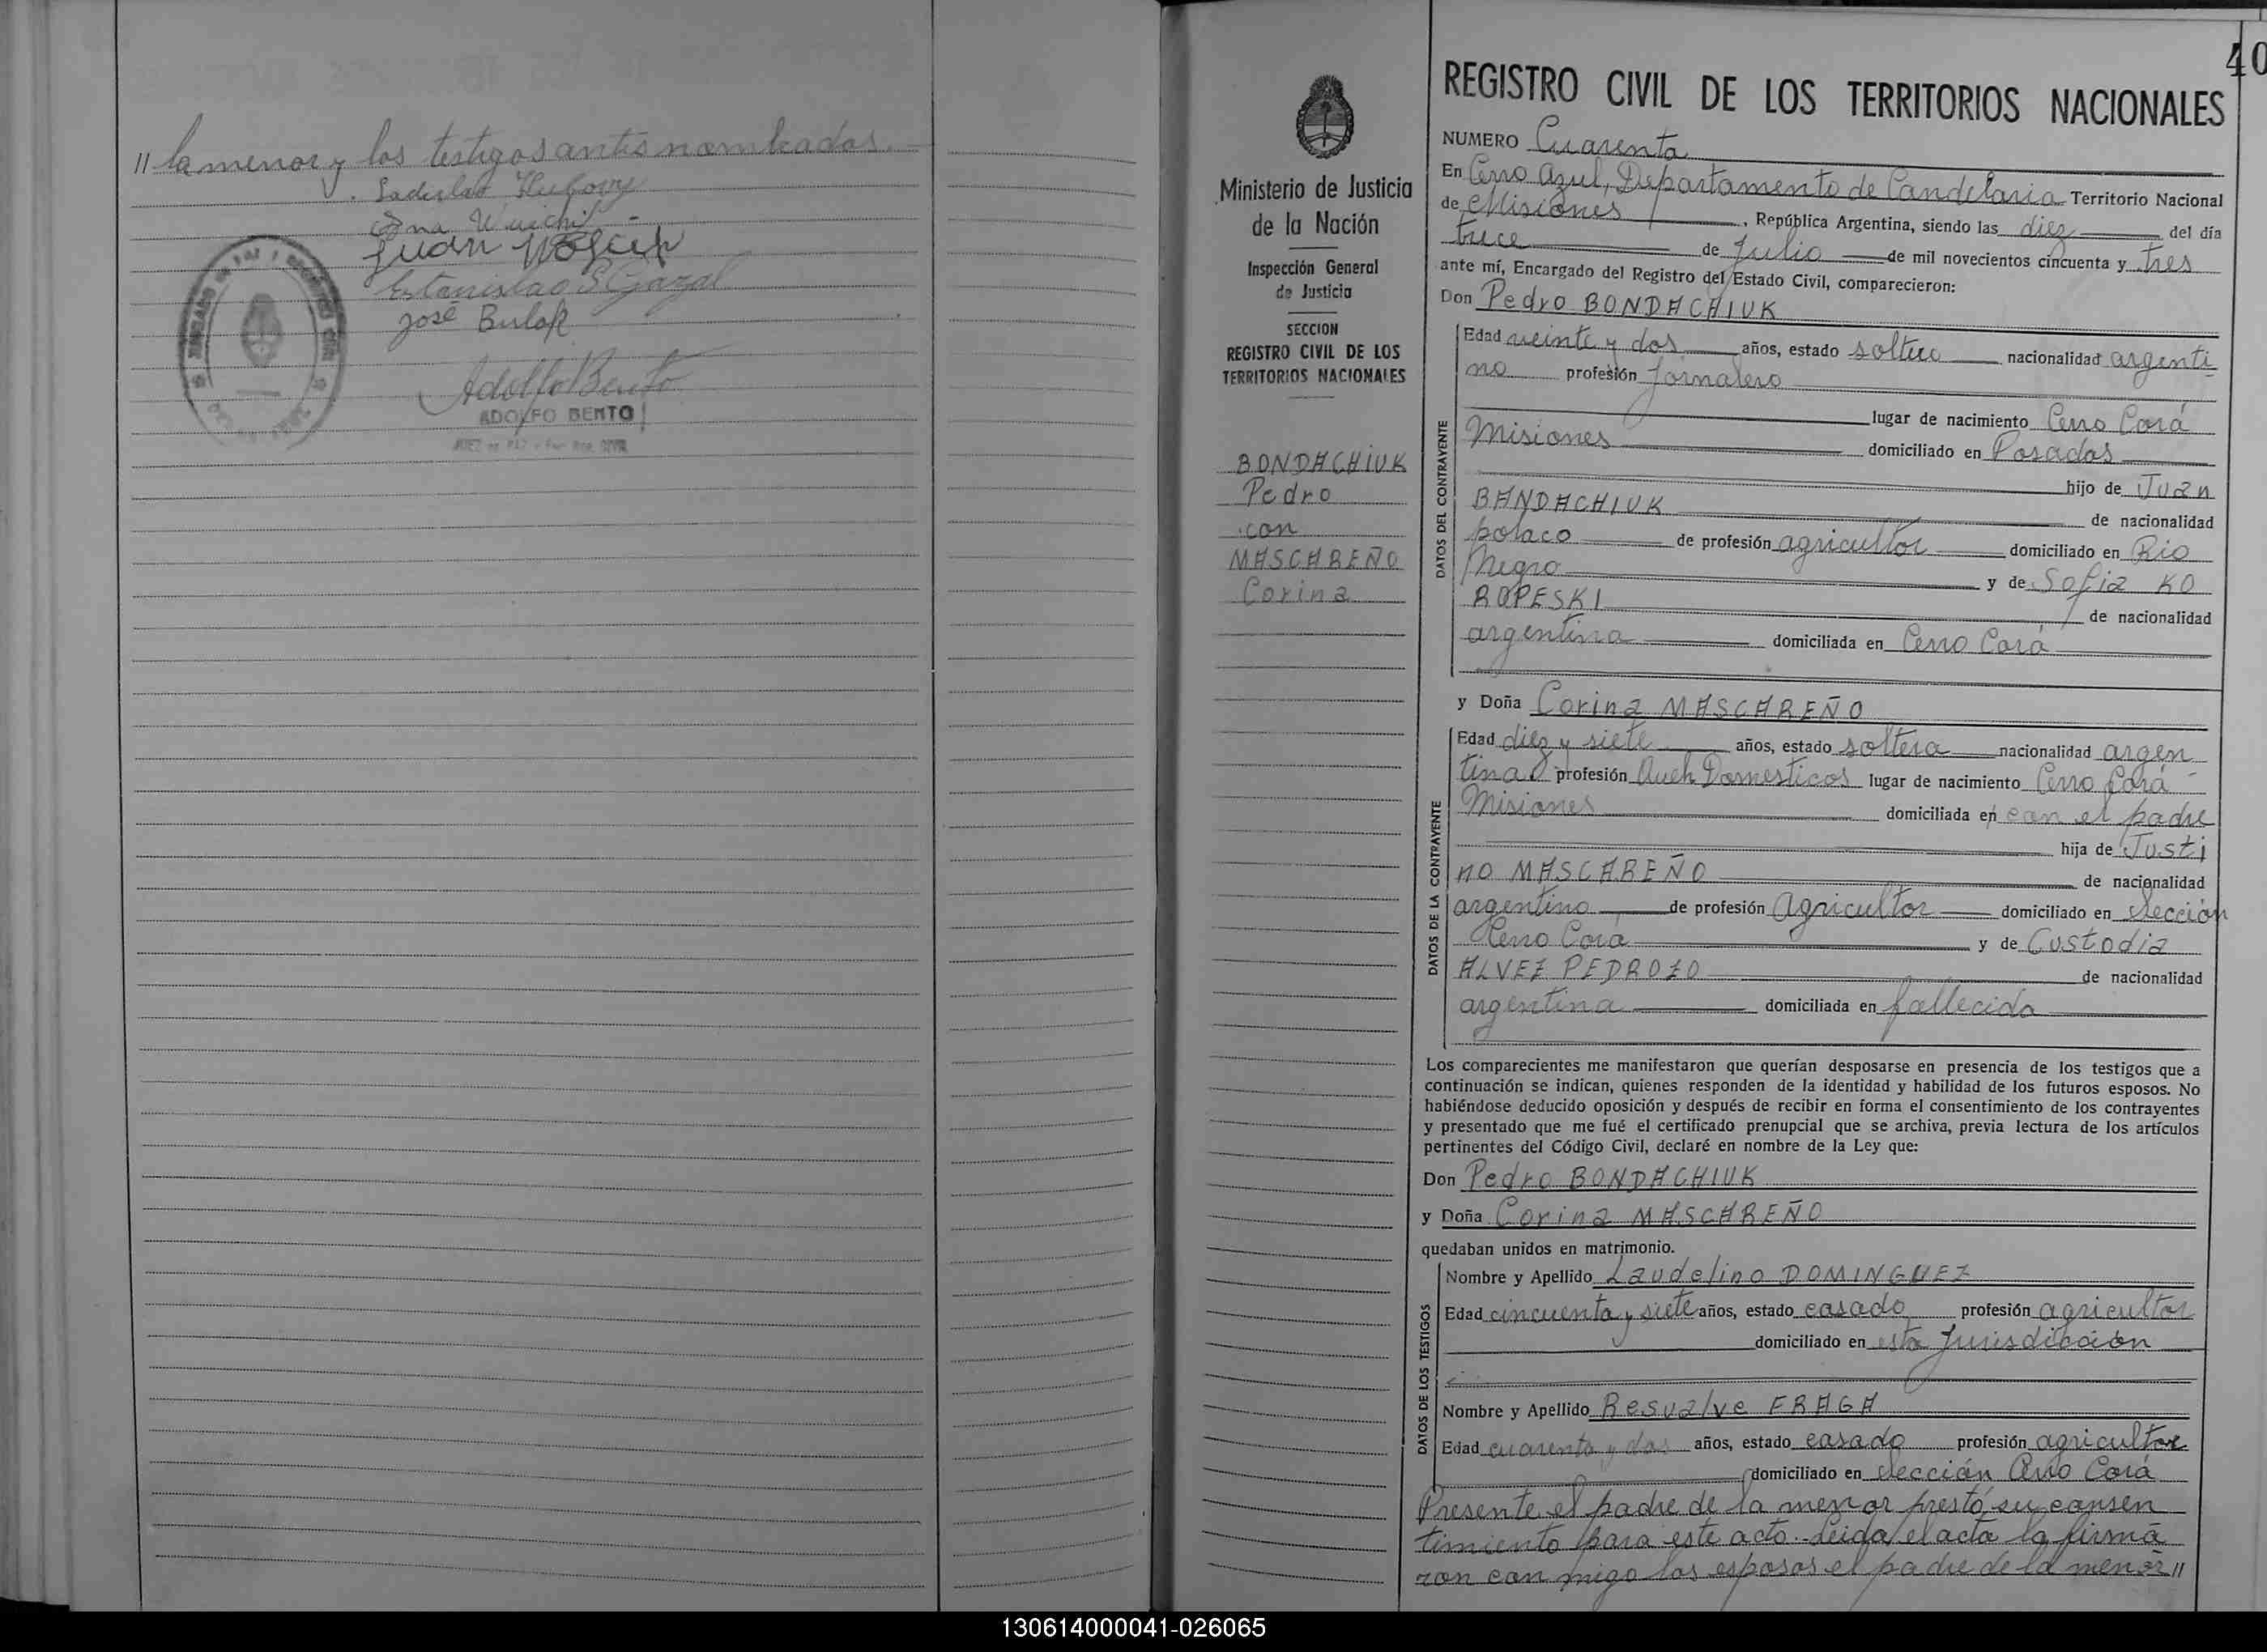 // la menor y los testigos antes nombrados.
Ladislao
Ana
Juan
Estanislao S Gazal
José Bulak
Adolfo Bento
ADOLFO BENTO
JUEZ DE PAZ
40
REGISTRO CIVIL DE LOS TERRITORIOS NACIONALES
Ministerio de Justicia
de la Nación
Inspección General
de Justicia
SECCION
REGISTRO CIVIL DE LOS
TERRITORIOS NACIONALES
BONDACHIUK
Pedro
con
MASCAREÑO
Corina
NUMERO Cuarenta
En Cerro Azul, Departamento de Candelaria Territorio Nacional
de Misiones, República Argentina, siendo las diez del día
trece de Julio de mil novecientos cincuenta y tres
ante mí, Encargado del Registro del Estado Civil, comparecieron:
Don Pedro BONDACHIUK
DATOS DEL CONTRAYENTE
Edad veinte y dos años, estado soltero nacionalidad argenti
no profesión Jornalero
lugar de nacimiento Cerro Corá
Misiones domiciliado en Posadas
hijo de Juan
BANDACHIUK de nacionalidad
polaco de profesión agricultor domiciliado en Rio
Negro y de Sofia KO
ROPESKI de nacionalidad
argentina domiciliada en Cerro Corá
y Doña Corina MASCAREÑO
DATOS DE LA CONTRAYENTE
Edad diez y siete años, estado soltera nacionalidad argen
tina profesión Queh Domesticos lugar de nacimiento Cerro Corá
Misiones domiciliada en con el padre
hija de Justi
no MASCAREÑO de nacionalidad
argentino de profesión Agricultor domiciliado en Sección
Cerro Corá y de Custodia
ALVEZ PEDROZO de nacionalidad
argentina domiciliada en fallecida
Los comparecientes me manifestaron que querían desposarse en presencia de los testigos que a
continuación se indican, quienes responden de la identidad y habilidad de los futuros esposos. No
habiéndose deducido oposición y después de recibir en forma el consentimiento de los contrayentes
y presentado que me fué el certificado prenupcial que se archiva, previa lectura de los artículos
pertinentes del Código Civil, declaré en nombre de la Ley que:
Don Pedro BONDACHIUK
y Doña Corina MASCAREÑO
quedaban unidos en matrimonio.
DATOS DE LOS TESTIGOS
Nombre y Apellido Laudelino DOMINGUEZ
Edad cincuenta y siete años, estado casado profesión agricultor
domiciliado en esta Jurisdicción
Nombre y Apellido Resualve FRAGA
Edad cuarenta y dos años, estado casado profesión agricultor
domiciliado en Sección Cerro Corá
Presente el padre de la menor prestó su consen
timiento para este acto. Leida el acta la firma
ron con migo los esposos el padre de la menor //
130614000041-026065